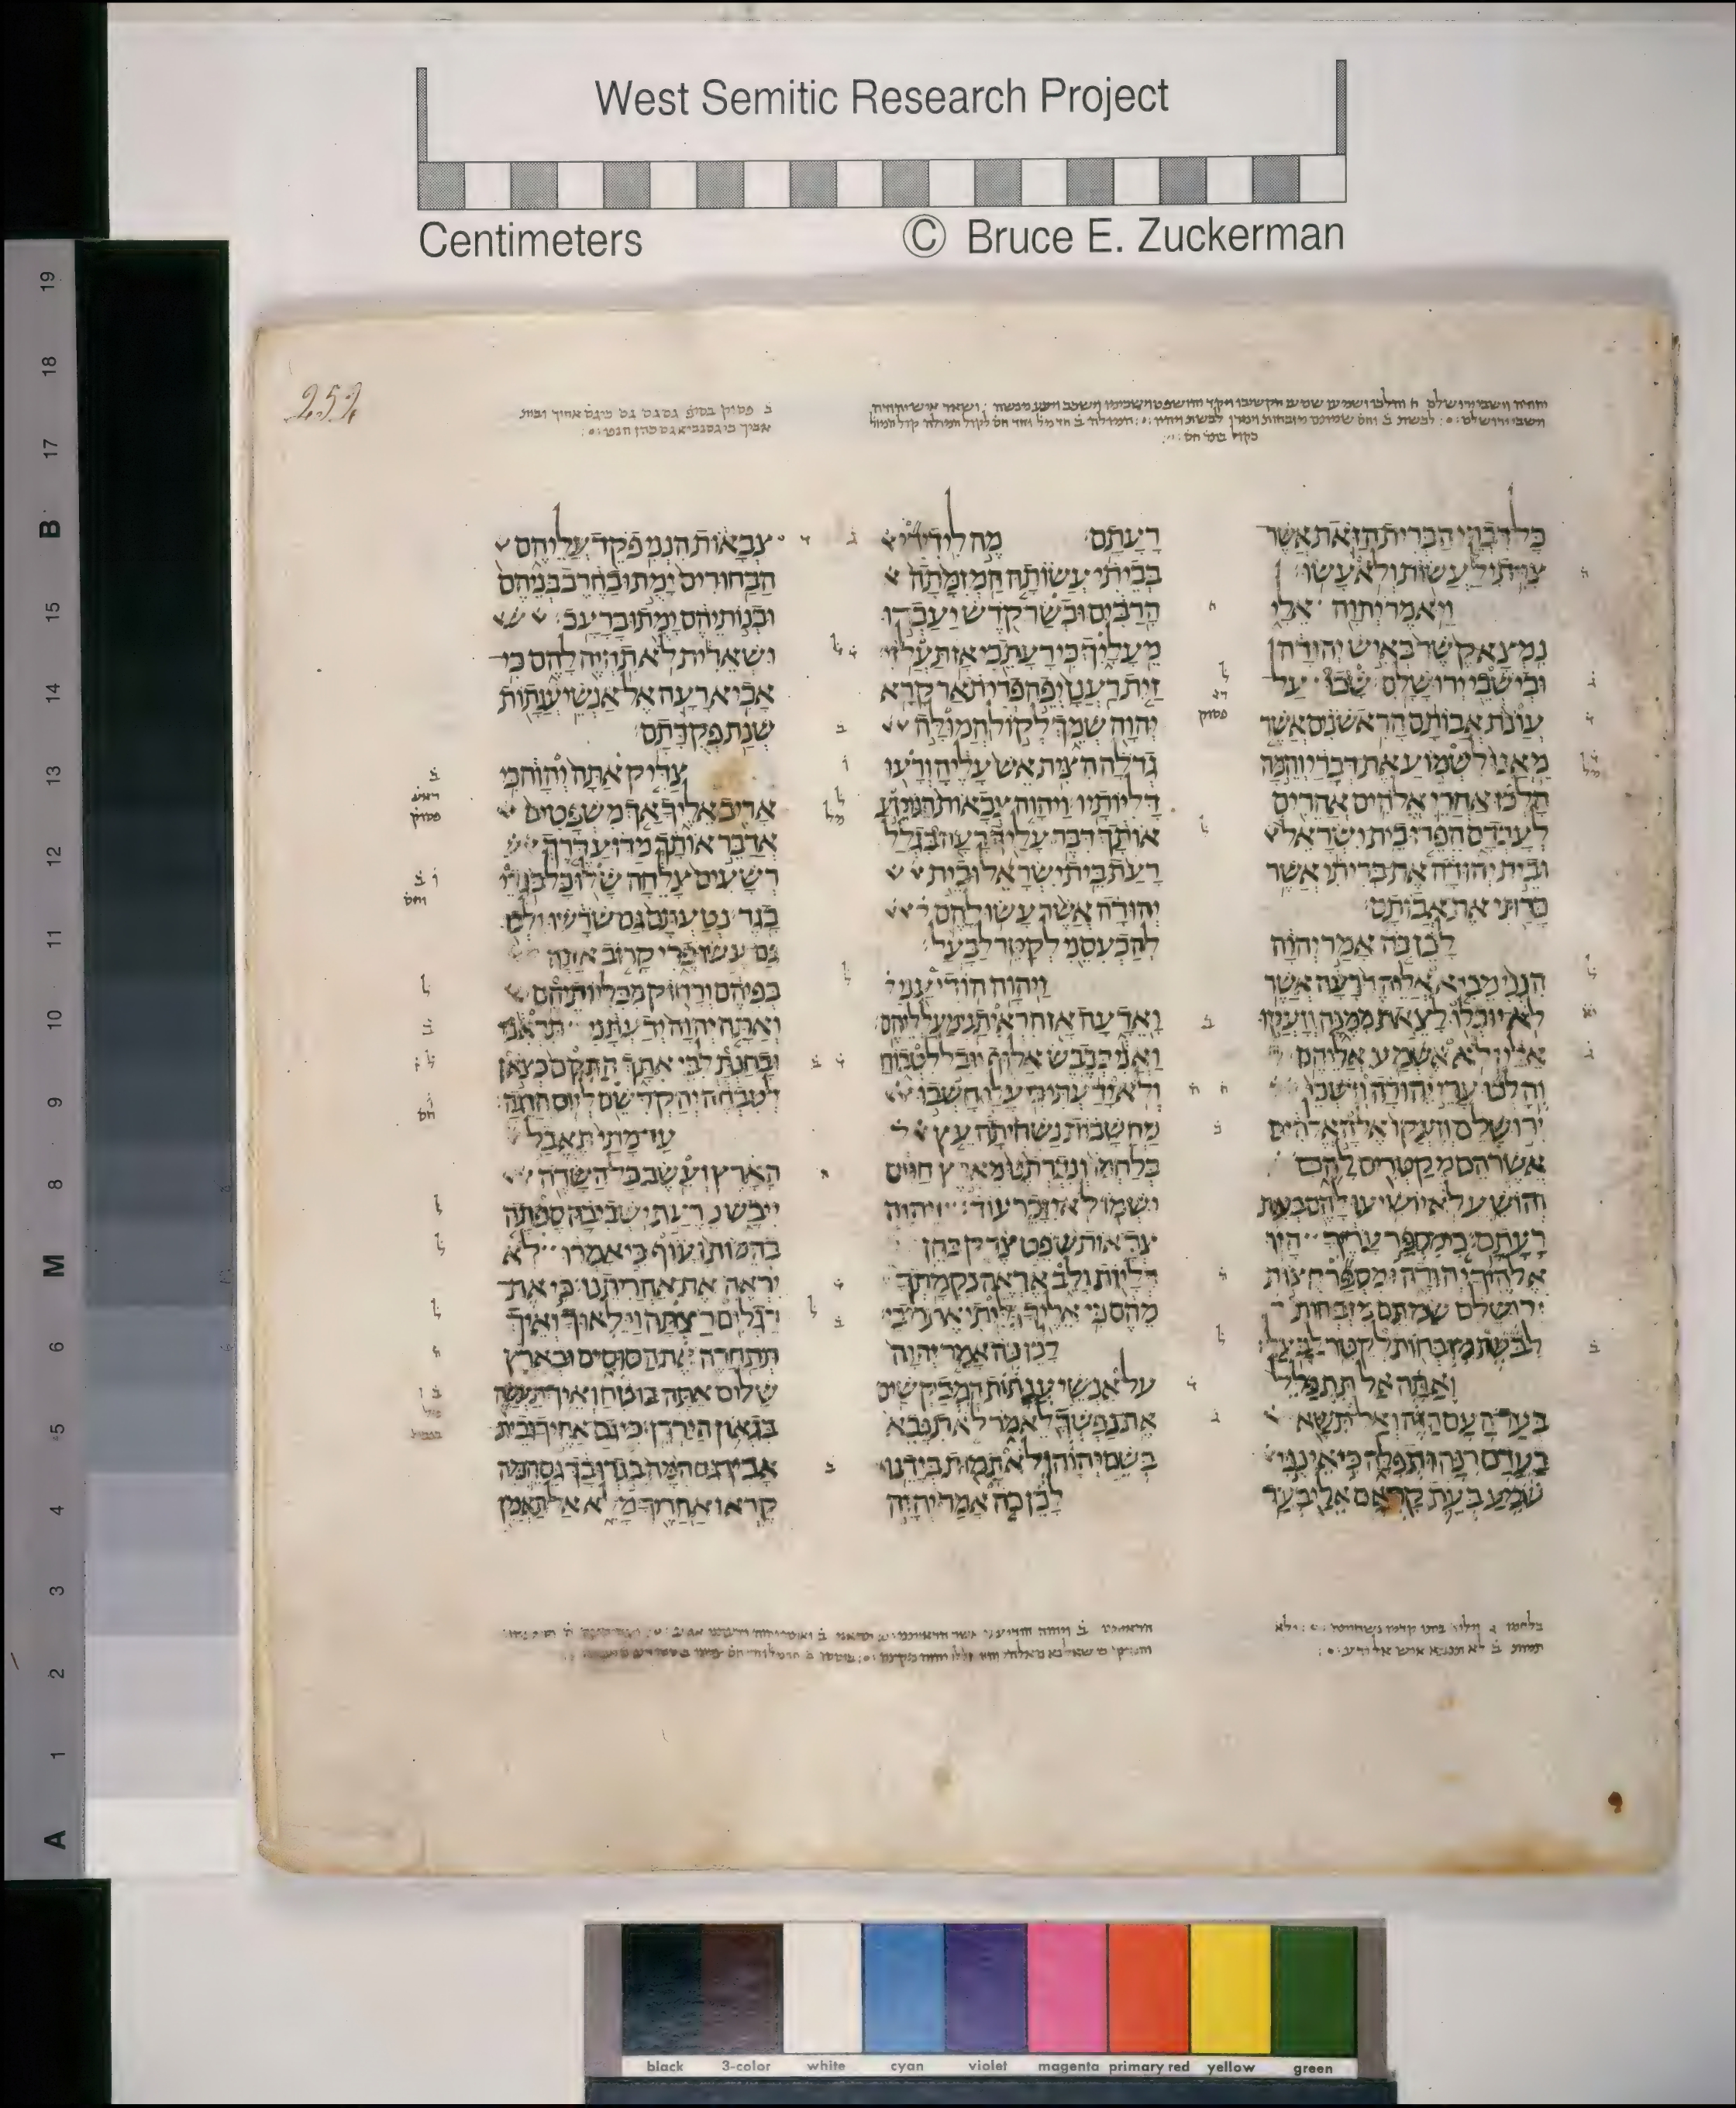 West Semitic Research Project
Centimeters © Bruce E. Zuckerman
252
כל דברי הברית הזאת אשר
צויתי לעשות ולא עשו׃
ויאמר יהוה אלי
נמצא קשר באיש יהודה
ובישבי ירושלם׃ שבו על
עונת אבותם הראשנים אשר
מאנו לשמוע את דברי והמה
הלכו אחרי אלהים אחרים
לעבדם הפרו בית ישראל
ובית יהודה את בריתי אשר
כרתי את אבותם׃
לכן כה אמר יהוה
הנני מביא אליהם רעה אשר
לא יוכלו לצאת ממנה וזעקו
אלי ולא אשמע אליהם׃
והלכו ערי יהודה וישבי
ירושלם וזעקו אל האלהים
אשר הם מקטרים להם
והושע לא יושיעו להם בעת
רעתם׃ כי מספר עריך היו
אלהיך יהודה ומספר חצות
ירושלם שמתם מזבחות
לבשת מזבחות לקטר לבעל׃
ואתה אל תתפלל
בעד העם הזה ואל תשא
בעדם רנה ותפלה כי אינני
שמע בעת קראם אלי בעד
רעתם׃ מה לידידי
בביתי עשותה המזמתה
הרבים ובשר קדש יעברו
מעליך כי רעתכי אז תעלזי׃
זית רענן יפה פרי תאר קרא
יהוה שמך לקול המולה
גדלה הצית אש עליה ורעו
דליותיו׃ ויהוה צבאות הנוטע
אותך דבר עליך רעה בגלל
רעת בית ישראל ובית
יהודה אשר עשו להם
להכעסני לקטר לבעל׃
ויהוה הודיעני
ואדעה אז הראיתני מעלליהם׃
ואני ככבש אלוף יובל לטבוח
ולא ידעתי כי עלי חשבו
מחשבות נשחיתה עץ
בלחמו ונכרתנו מארץ חיים
ושמו לא יזכר עוד׃ ויהוה
צבאות שפט צדק בחן
כליות ולב אראה נקמתך
מהם כי אליך גליתי את ריבי׃
לכן כה אמר יהוה
על אנשי ענתות המבקשים
את נפשך לאמר לא תנבא
בשם יהוה ולא תמות בידנו׃
לכן כה אמר יהוה
צבאות הנני פקד עליהם
הבחורים ימתו בחרב בניהם
ובנותיהם ימתו ברעב׃
ושארית לא תהיה להם כי
אביא רעה אל אנשי ענתות
שנת פקדתם׃
צדיק אתה יהוה כי
אריב אליך אך משפטים
אדבר אותך מדוע דרך
רשעים צלחה שלו כל בגדי
בגד׃ נטעתם גם שרשו ילכו
גם עשו פרי קרוב אתה
בפיהם ורחוק מכליותיהם׃
ואתה יהוה ידעתני תראני
ובחנת לבי אתך התקם כצאן
לטבחה והקדשם ליום הרגה׃
עד מתי תאבל
הארץ ועשב כל השדה
ייבש מרעת ישבי בה ספתה
בהמות ועוף כי אמרו לא
יראה את אחריתנו׃ כי את
רגלים רצתה וילאוך ואיך
תתחרה את הסוסים ובארץ
שלום אתה בוטח ואיך תעשה
בגאון הירדן׃ כי גם אחיך ובית
אביך גם המה בגדו בך גם המה
קראו אחריך מלא אל תאמן
black 3-color white cyan violet magenta primary red yellow green
A 1 2 3 4 5 6 M 8 9 10 11 12 13 14 15 B 17 18 19